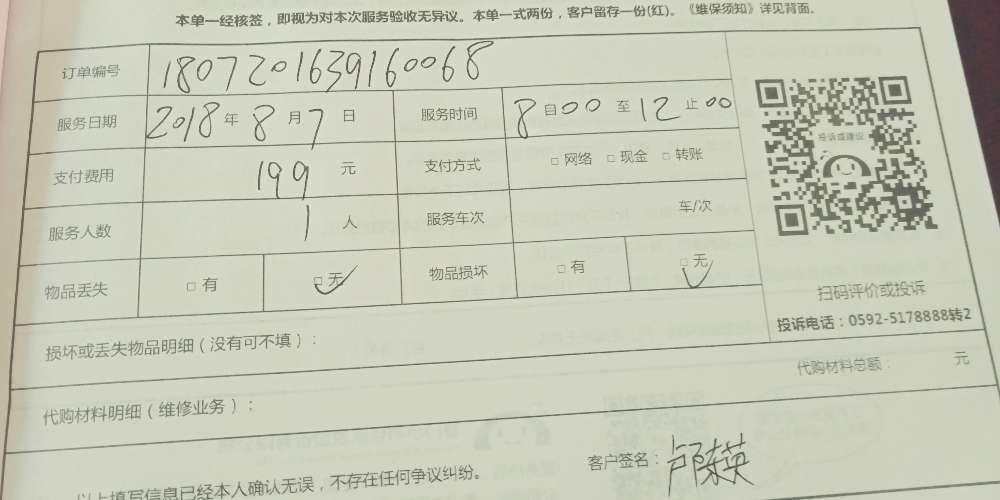 本单一经核签，即视为对本次服务验收无异议。本单一式两份，客户留存一份(红)。《维保须知》详见背面。
订单编号 1807201639160068
服务日期 2018 年 8 月 7 日 服务时间 8 自 00 至 12 止 00
投诉或建议
支付费用 199 元 支付方式 □ 网络 □ 现金 □ 转账
服务人数 1 人 服务车次 车/次
物品丢失 □ 有 □ 无 物品损坏 □ 有 □ 无
扫码评价或投诉
投诉电话：0592-5178888转2
损坏或丢失物品明细（没有可不填）：
代购材料明细（维修业务）： 代购材料总额： 元
以上填写信息已经本人确认无误，不存在任何争议纠纷。 客户签名：